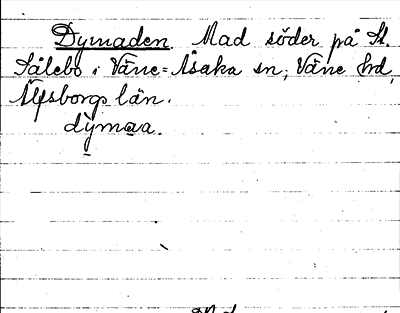 Dymaden. Mad söder på St.
Sålebo i Väne-Åsaka sn, Väne hd,
Älfsborgs län.
dýmaa.